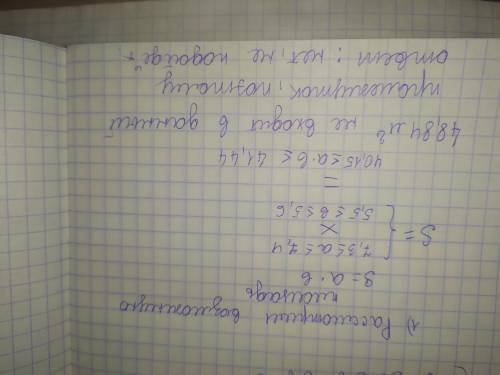 1) Рассмотрим возможную
площадь
S = a · b
S = { 7,3 ≤ a ≤ 7,4
×
5,5 ≤ b ≤ 5,6
=
40,15 ≤ a · b ≤ 41,44
48,84 м² не входит в данный
промежуток, поэтому
ответ: нет, не подойдёт